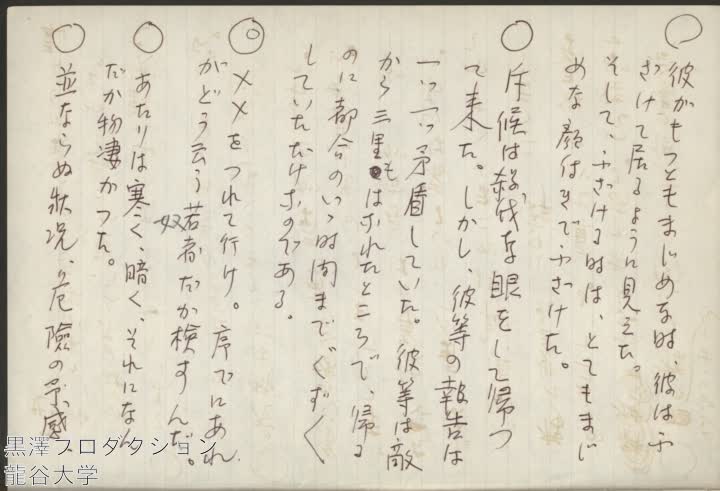 ○
彼がもつともまじめな時、彼はふ
ざけて居るように見えた。
そして、ふざける時は、とてもまじ
めな顔付きでふざけた。
○
斥候は殺伐な眼をして帰つ
て来た。しかし、彼等の報告は
一つ一つ矛盾していた。彼等は敵
から三里もはなれたところで、帰る
のに都合のいゝ時間までぐずぐ
していただけなのである。
◎
××をつれて行け。序でにあれ
がどう云う若者だか検すんだ。
奴
○
あたりは寒く、暗く、それになん
だか物凄かつた。
○
並ならぬ状況、危険の予感、
黒澤プロダクション
龍谷大学